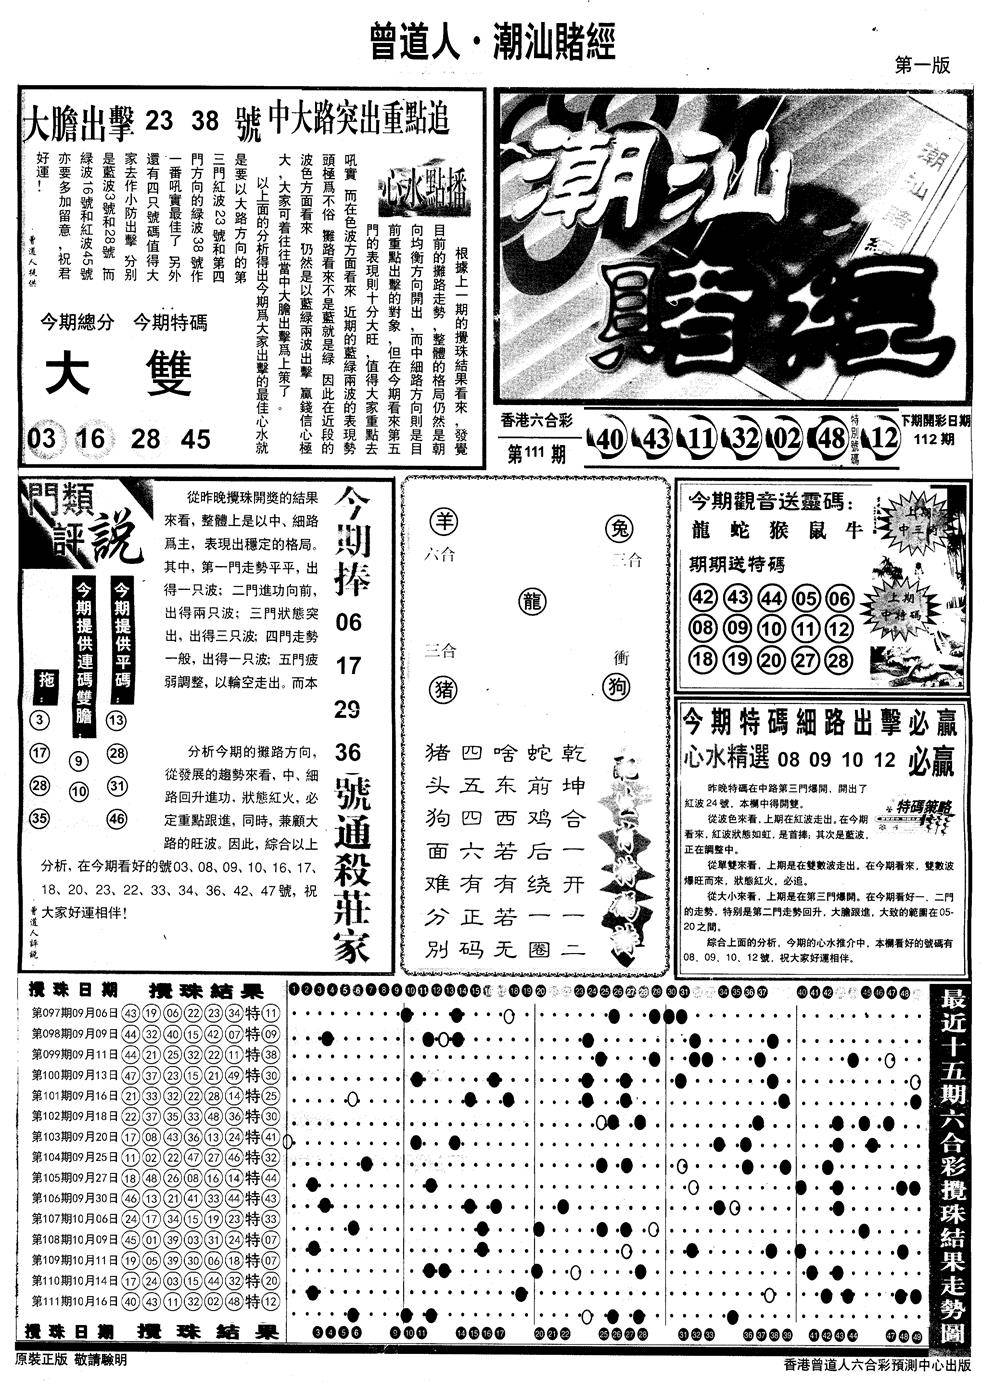 曾道人·潮汕賭經
第一版
大膽出擊 23 38 號 中大路突出重點追
心水點播
根據上一期的攪珠結果看來,發覺
目前的攤路走勢,整體的格局仍然是朝
向均衡方向開出,而中細路方向則是目
前重點出擊的對象,但在今期看來第五
門的表現則十分大旺,值得大家重點去
吼實 而在色波方面看來 近期的藍綠兩波的表現勢
頭極爲不俗 攤路看來不是藍就是綠 因此在近段的
波色方面看來 仍然是以藍綠兩波出擊 贏錢信心極
大,大家可着往往當中大膽出擊爲上策了。
以上面的分析得出今期爲大家出擊的最佳心水就
是要以大路方向的第
三門紅波23號和第四
門方向的綠波38號作
一番吼實最佳了 另外
還有四只號碼值得大
家去作小防出擊 分別
是藍波3號和28號 而
綠波16號和紅波45號
亦要多加留意,祝君
好運!
曾道人提供
今期總分 今期特碼
大 雙
03 16 28 45
潮汕
賭經
香港六合彩
第111期
40 43 11 32 02 48 特別號碼 12
下期開彩日期
112期
門類
評説
今期提供平碼:
13
28
31
46
今期提供連碼雙膽:
9
10
拖:
3
17
28
35
從昨晚攪珠開獎的結果
來看,整體上是以中、細路
爲主,表現出穩定的格局。
其中,第一門走勢平平,出
得一只波;二門進功向前,
出得兩只波;三門狀態突
出,出得三只波;四門走勢
一般,出得一只波;五門疲
弱調整,以輪空走出。而本
分析今期的攤路方向,
從發展的趨勢來看,中、細
路回升進功,狀態紅火,必
定重點跟進,同時,兼顧大
路的旺波。因此,綜合以上
分析,在今期看好的號03、08、09、10、16、17、
18、20、23、22、33、34、36、42、47號,祝
大家好運相伴!
曾道人評説
今期捧
06
17
29
36
號通殺莊家
羊 兔
六合 三合
龍
三合 衝
猪 狗
猪四啥蛇乾
头五东前坤
狗四西鸡合
面六若后一
难有有绕开
分正若一一
別码无圈二
今期觀音送靈碼:
龍 蛇 猴 鼠 牛
上期
中三
期期送特碼
42 43 44 05 06
08 09 10 11 12
18 19 20 27 28
上期
中特碼
今期特碼細路出擊必贏
心水精選 08 09 10 12 必贏
特碼策略
昨晚特碼在中路第三門爆開,開出了
紅波24號,本欄中得開雙。
從波色來看,上期在紅波走出,在今期
看來,紅波狀態如虹,是首捧;其次是藍波,
正在調整中。
從單雙來看,上期是在雙數波走出,在今期看來,雙數波
爆旺而來,狀態紅火,必追。
從大小來看,上期是在第三門爆開。在今期看好一、二門
的走勢,特別是第二門走勢回升,大膽跟進,大致的範圍在05-
20之間。
綜合上面的分析,今期的心水推介中,本欄看好的號碼有
08、09、10、12號,祝大家好運相伴。
攪珠日期 攪珠結果
第097期09月06日 43 19 06 22 23 34 特 11
第098期09月09日 44 32 40 15 42 07 特 09
第099期09月11日 44 21 25 32 22 11 特 38
第100期09月13日 47 37 23 15 21 49 特 30
第101期09月16日 21 33 32 22 28 14 特 25
第102期09月18日 22 37 35 33 48 36 特 30
第103期09月20日 17 08 43 36 13 24 特 41
第104期09月25日 11 02 22 47 27 46 特 32
第105期09月27日 18 48 26 08 16 14 特 44
第106期09月30日 46 13 21 41 33 44 特 43
第107期10月06日 24 17 34 15 19 23 特 33
第108期10月09日 45 01 39 03 31 24 特 07
第109期10月11日 19 05 39 30 06 18 特 07
第110期10月14日 17 24 03 15 44 32 特 20
第111期10月16日 40 43 11 32 02 48 特 12
攪珠日期 攪珠結果
最近十五期六合彩攪珠結果走勢圖
原裝正版 敬請驗明
香港曾道人六合彩預測中心出版